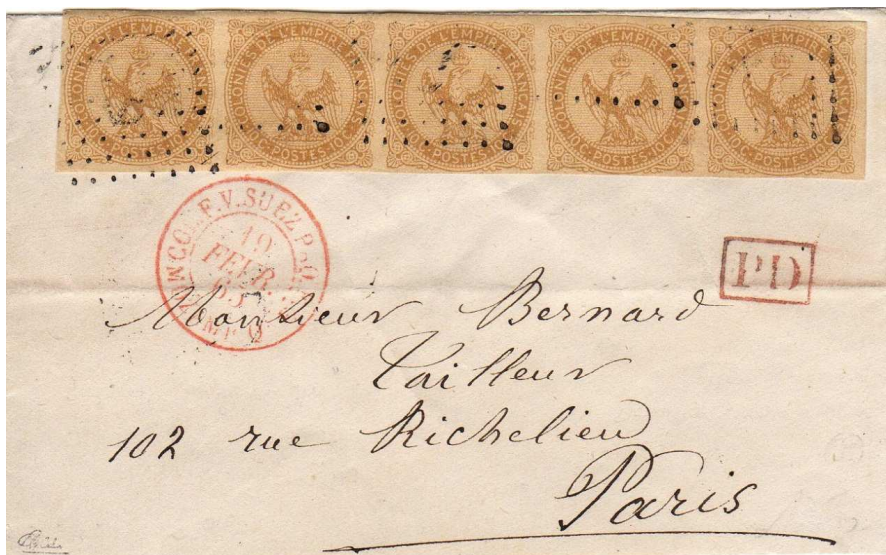 COLONIES DE L'EMPIRE FRANÇAISE
10 C. POSTES 10 C.
COLONIES DE L'EMPIRE FRANÇAISE
10 C. POSTES 10 C.
COLONIES DE L'EMPIRE FRANÇAISE
10 C. POSTES 10 C.
COLONIES DE L'EMPIRE FRANÇAISE
10 C. POSTES 10 C.
COLONIES DE L'EMPIRE FRANÇAISE
10 C. POSTES 10 C.
F. V. SUEZ
19
FEVR.
PD
Monsieur Bernard
Tailleur
102 rue Richelieu
Paris